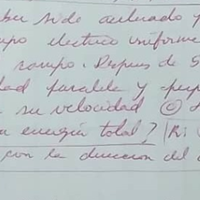 sido acelerado y
campo electrico uniforme
campo. Despues de 5
dad paralela y perp
su velocidad ©
a energia total? (R:
con la direccion del